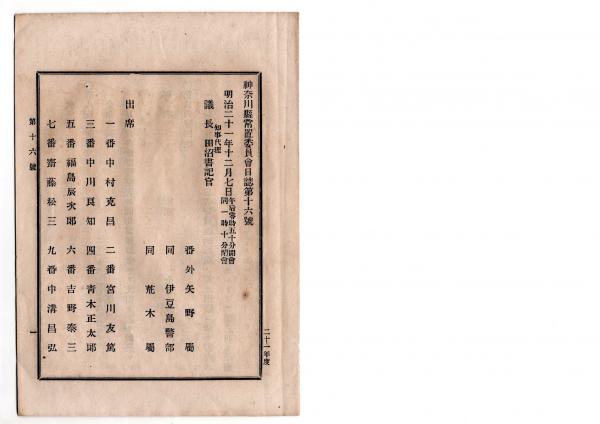 神奈川縣常置委員會日誌第十六號
明治二十一年十二月七日午后零時五十分開會同一時十分閉會
議長知事代理田沼書記官
番外矢野屬
同伊豆島警部
同荒木屬
出席
一番中村克昌 二番宮川友篤
三番中川良知 四番靑木正太郎
五番福島辰次郎 六番吉野泰三
七番齋藤松三 九番中溝昌弘
二十一年度
第十六號
一